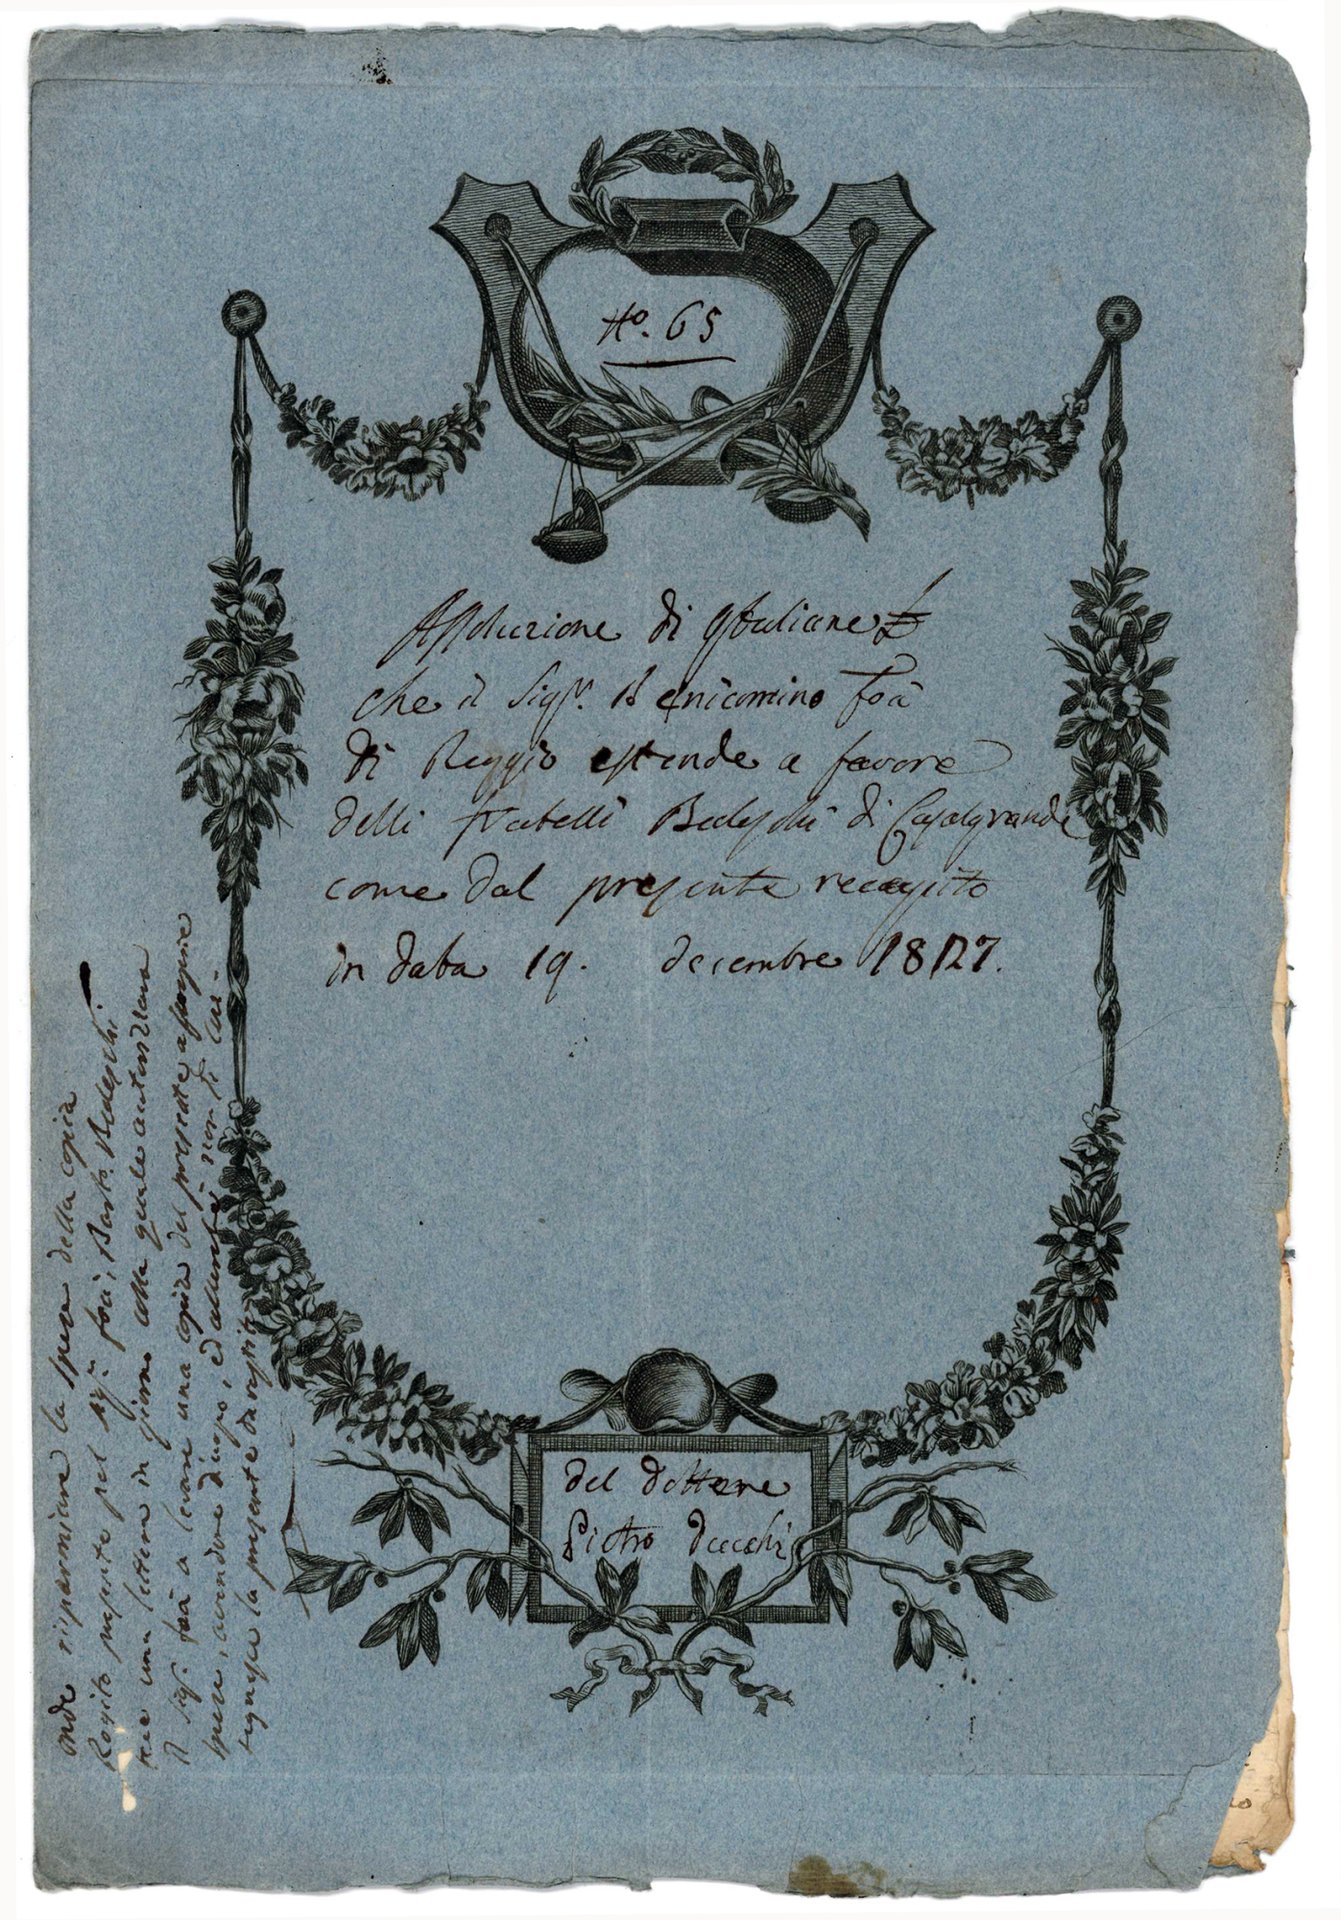 No. 65
Assoluzione di Italiane £
che il Sigr. Beniamino Foà
di Reggio estende a favore
delli fratelli Bedeschi di Casalgrande
come dal presente recapito
in data 19. decembre 1827.
del dottore
Pietro Ducchi
onde risparmiare la spesa della copia
Rogito presente pel sigr. foà, Barto. Bedeschi
una lettera in giorno alla quale autorizzava
il Sigr. foà a levare una copia del presente a proprie
spese, avendone d'uopo, ed allora non si
la presente